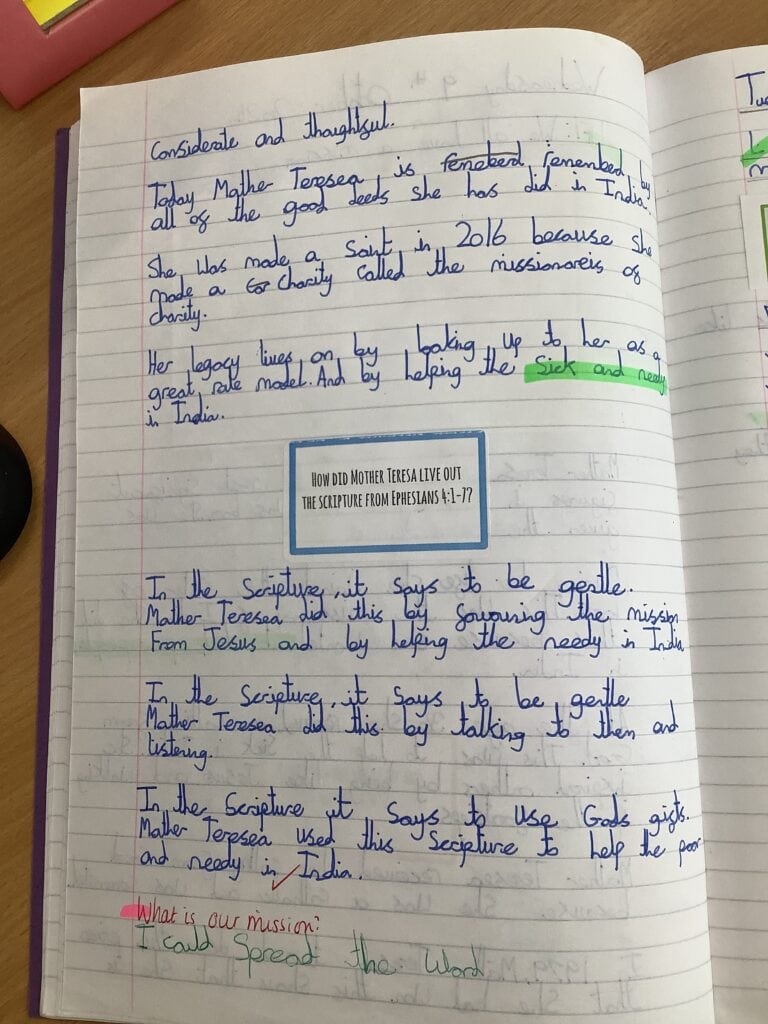 Considerate and thoughtful.
Today Mother Teresea is remembed by
all of the good deeds she has did in India.
She was made a Saint in 2016 because she
made a Charity called the missionareis of
charity.
Her legacy lives on by looking up to her as a
great role model. And by helping the Sick and needy
in India.
HOW DID MOTHER TERESA LIVE OUT
THE SCRIPTURE FROM EPHESIANS 4:1-7?
In the Scripture, it says to be gentle.
Mother Teresea did this by the mission
From Jesus and by helping the needy in India
In the Scripture, it says to be gentle
Mother Teresea did this by talking to them and
listering.
In the Scripture it Says to use Gods gifts.
Mother Teresea used this Scripture to help the poor
and needy in India.
What is our mission?
I could Spread the Word